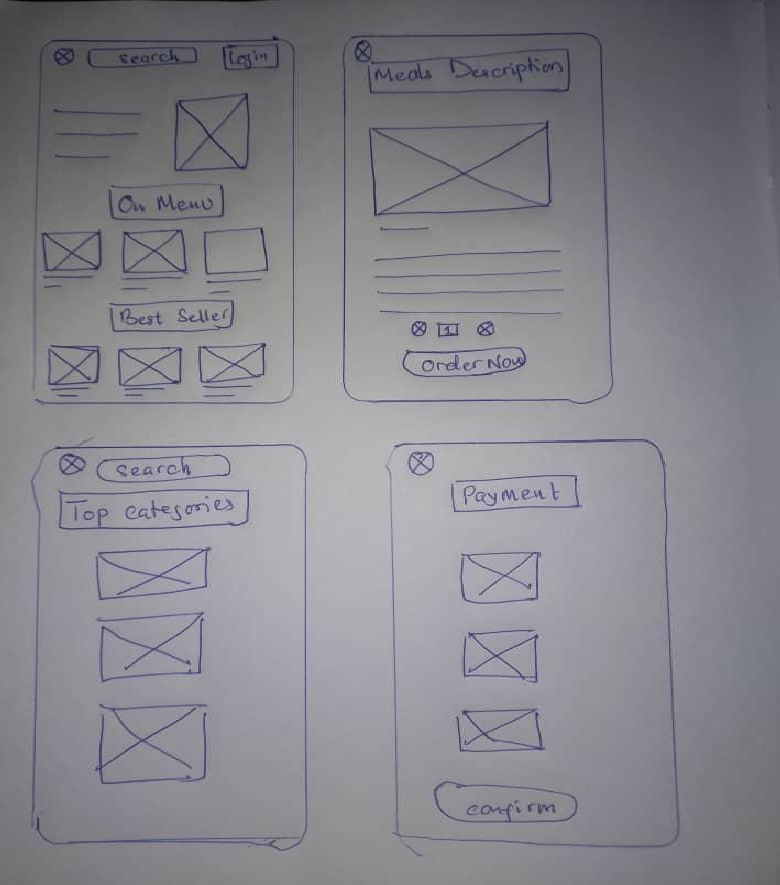 Search Login
On Menu
Best Seller
Meals Description
1
Order Now
Search
Top categories
Payment
confirm